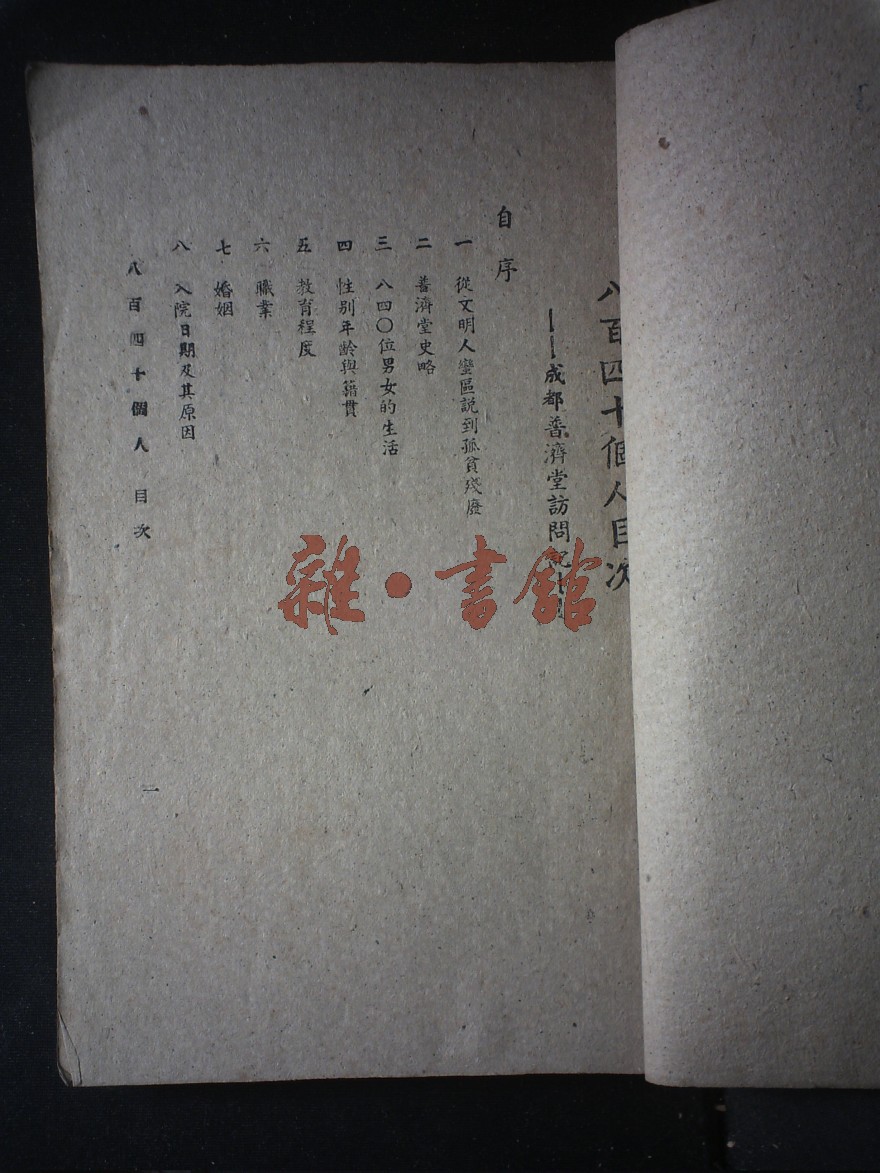 八百四十個人目次
——成都普濟堂訪問
自序
一 從文明人蠻區說到孤貧殘廢
二 普濟堂史略
三 八四〇位男女的生活
四 性別年齡與籍貫
五 教育程度
六 職業
七 婚姻
八 入院日期及其原因
八百四十個人 目次
一
雜·書館